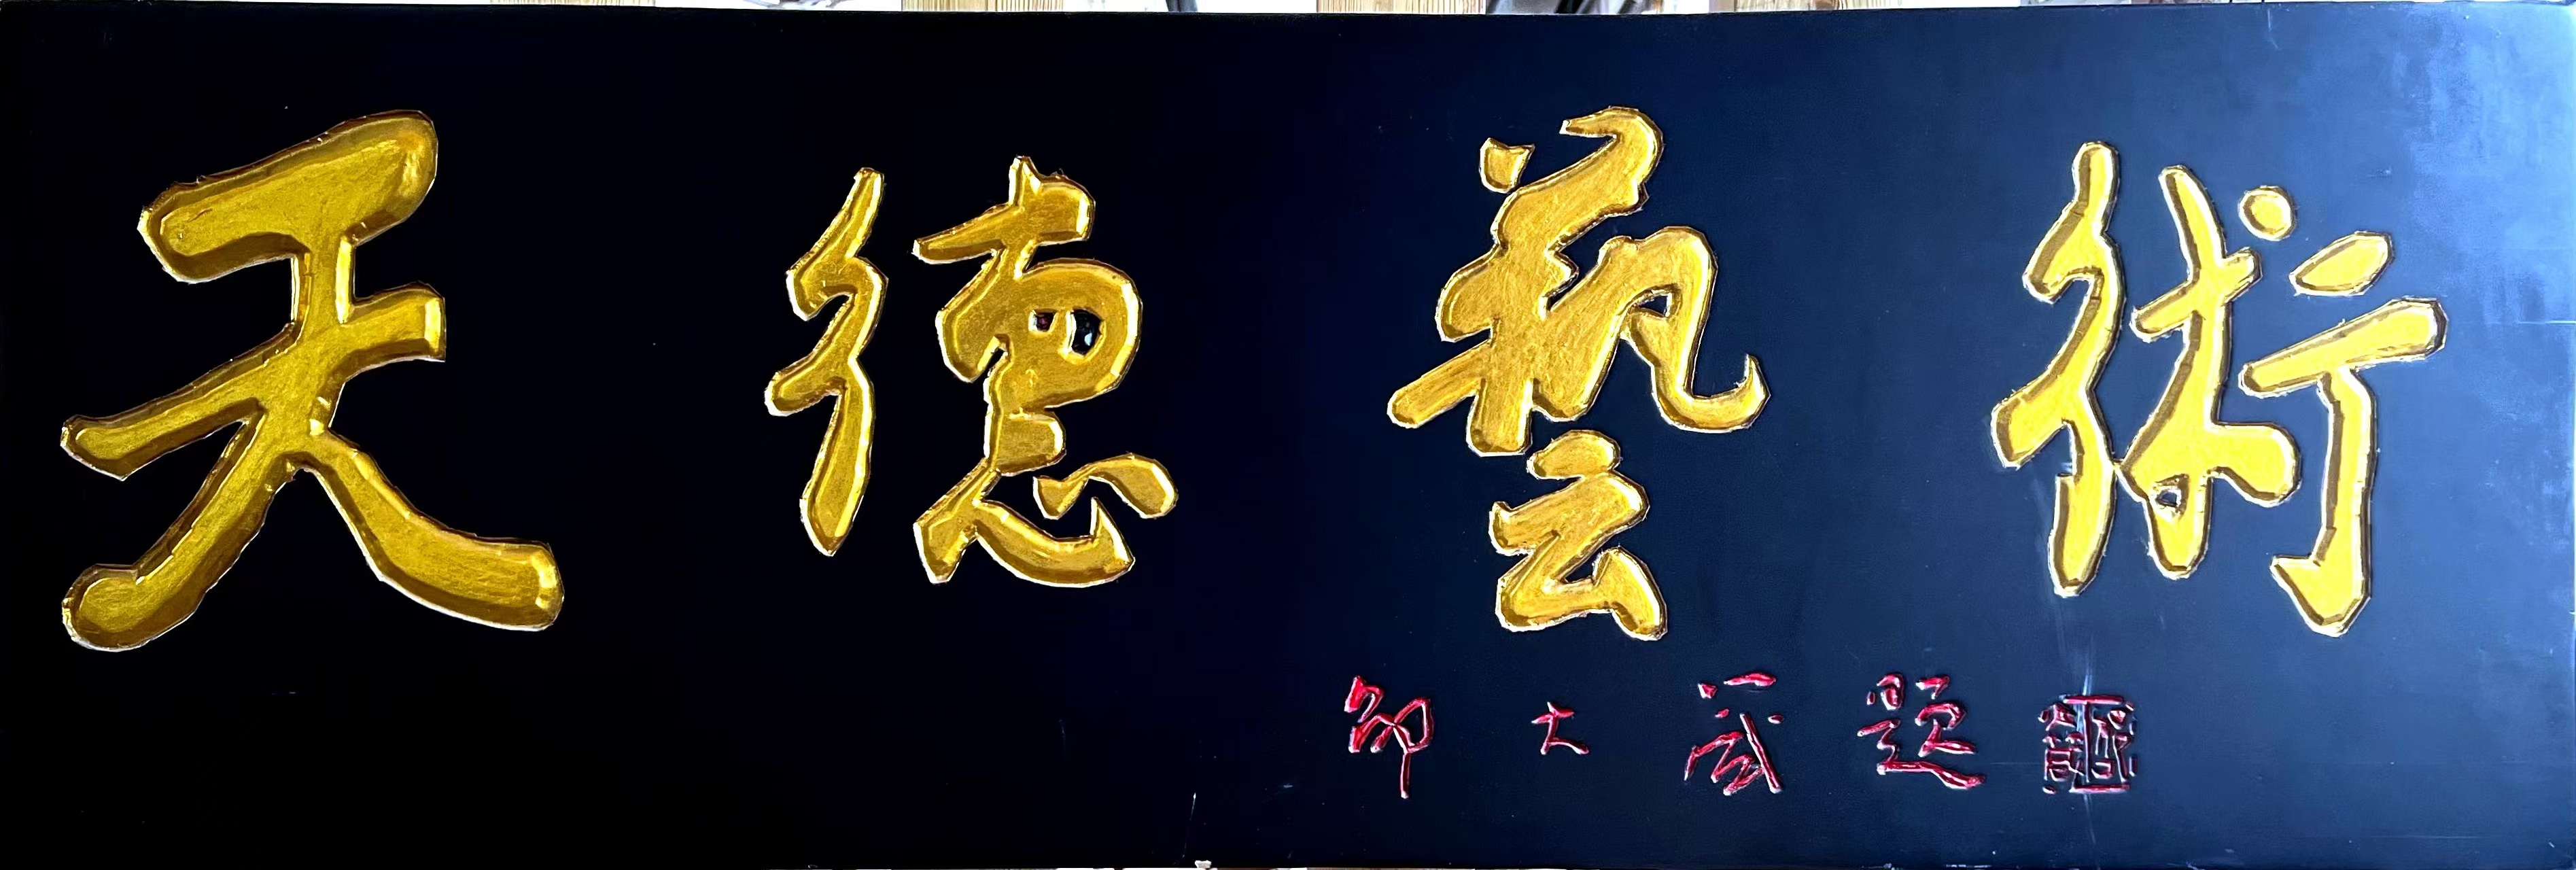 天德藝術
邵大箴題